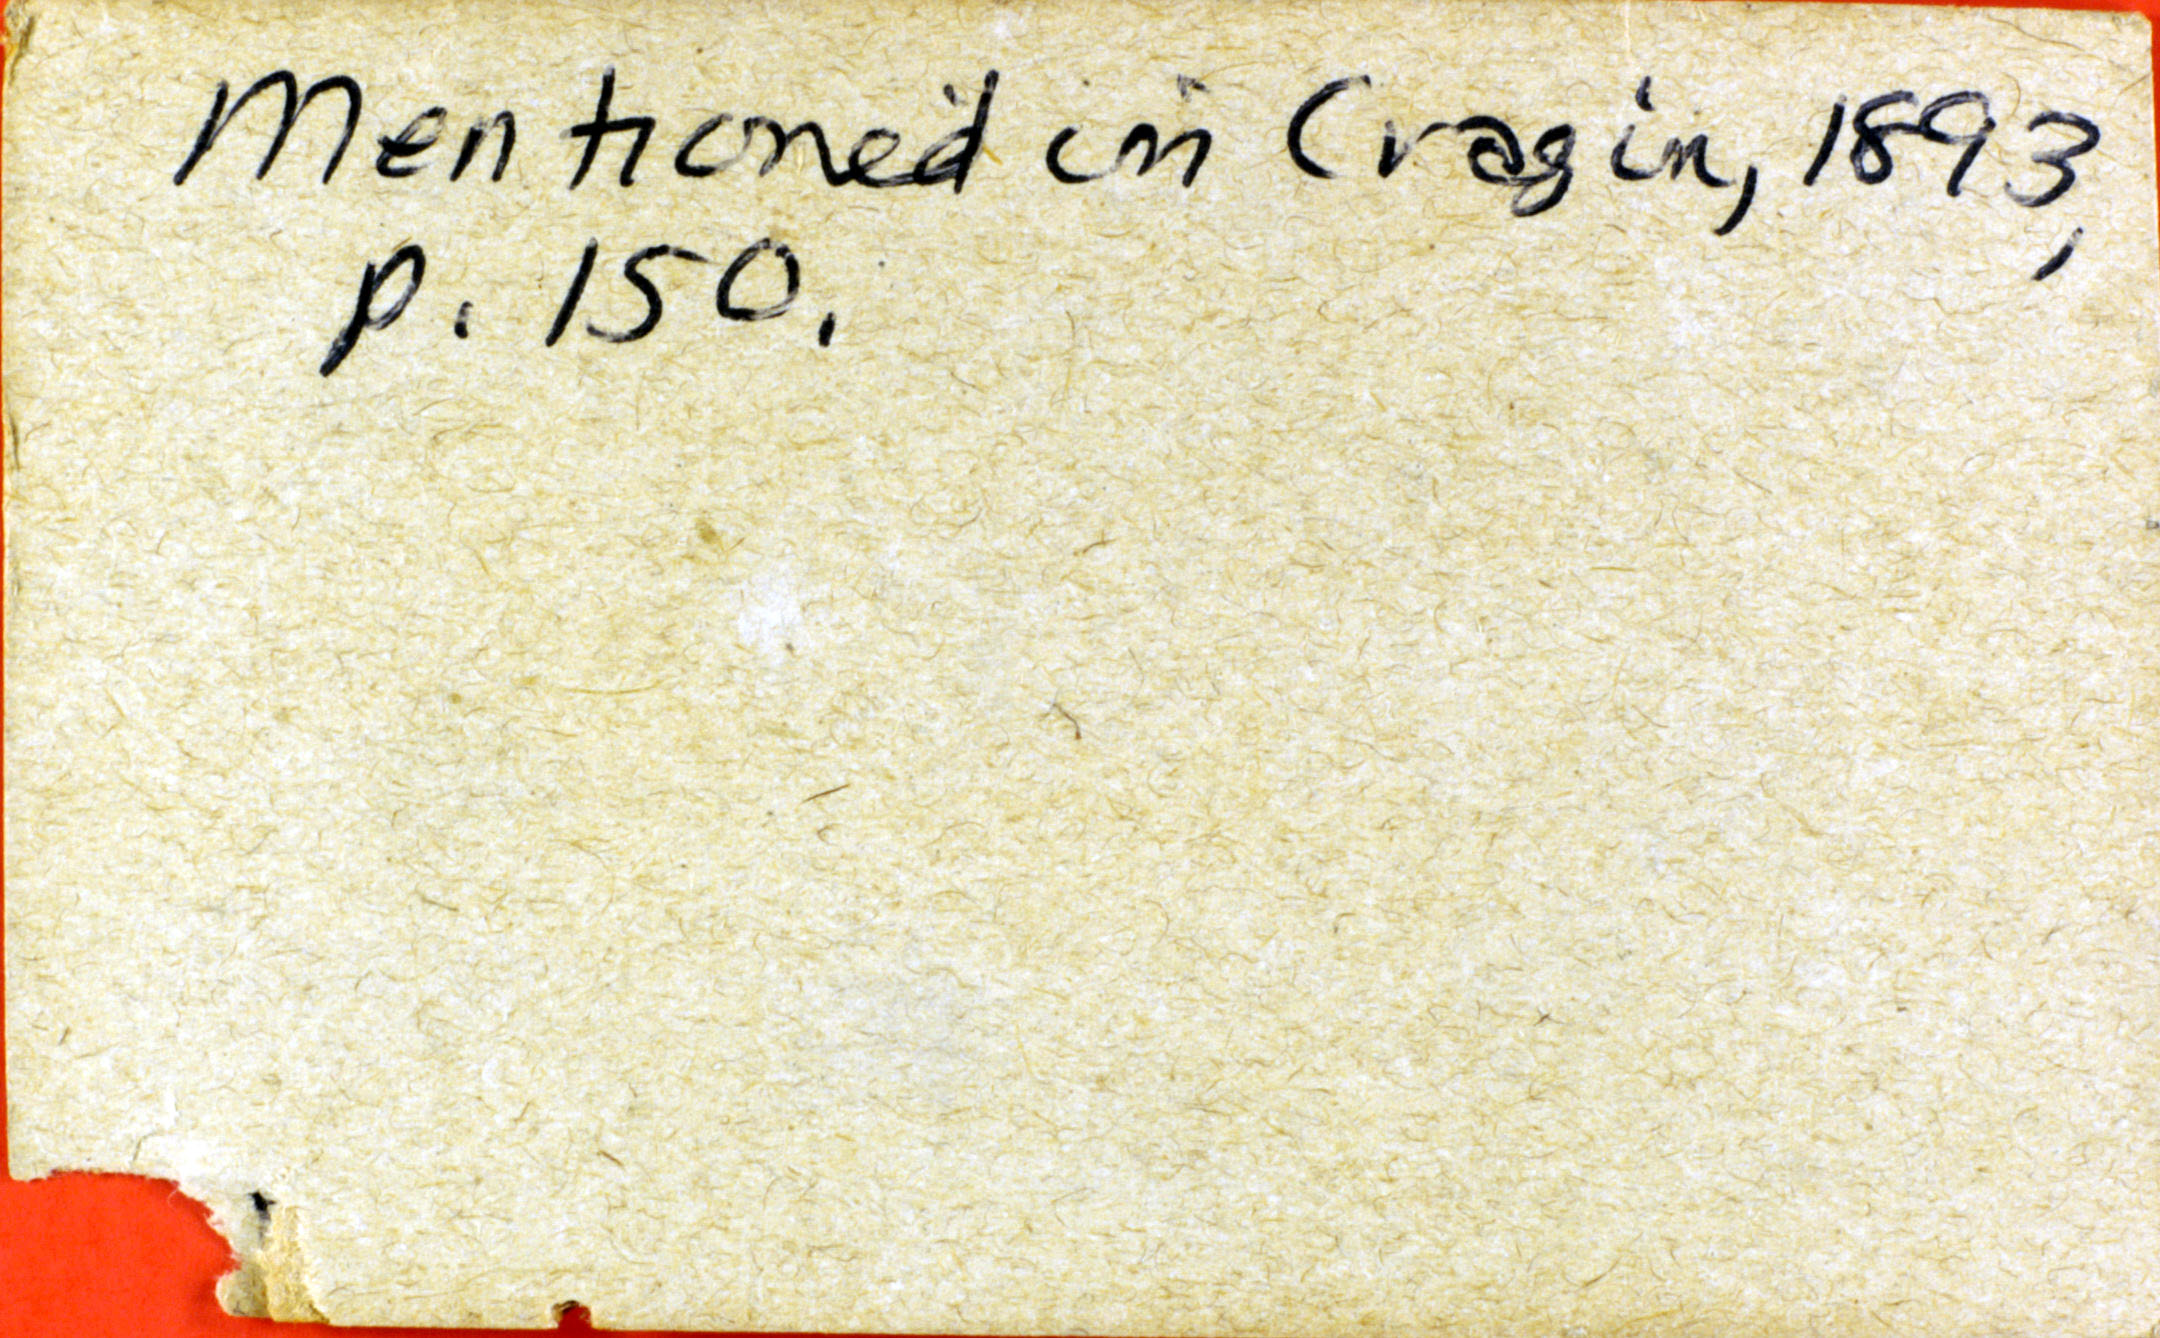 Mentioned in Cragin, 1893,
p. 150.